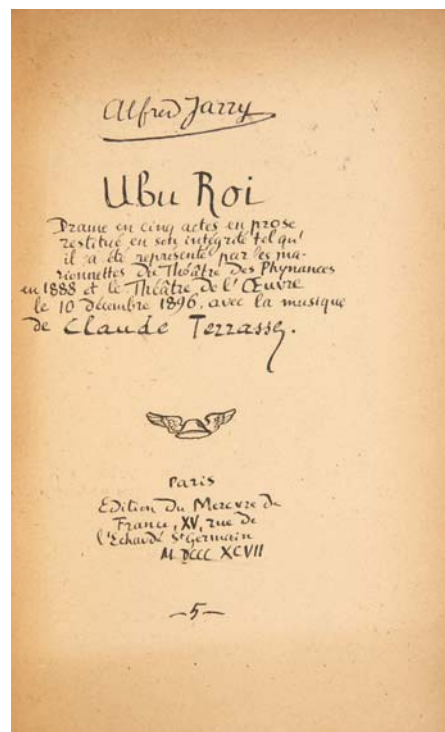 Alfred Jarry
Ubu Roi
Drame en cinq actes en prose
restitué en son intégrité tel qu'
il a été représenté par les ma-
rionnettes du Théâtre des Phynances
en 1888 et le Théâtre de l'Œuvre
le 10 décembre 1896, avec la musique
de Claude Terrasse.
Paris
Edition du Mercvre de
France, XV, rue de
l'Echaudé St Germain
M DCCC XCVII
—5—